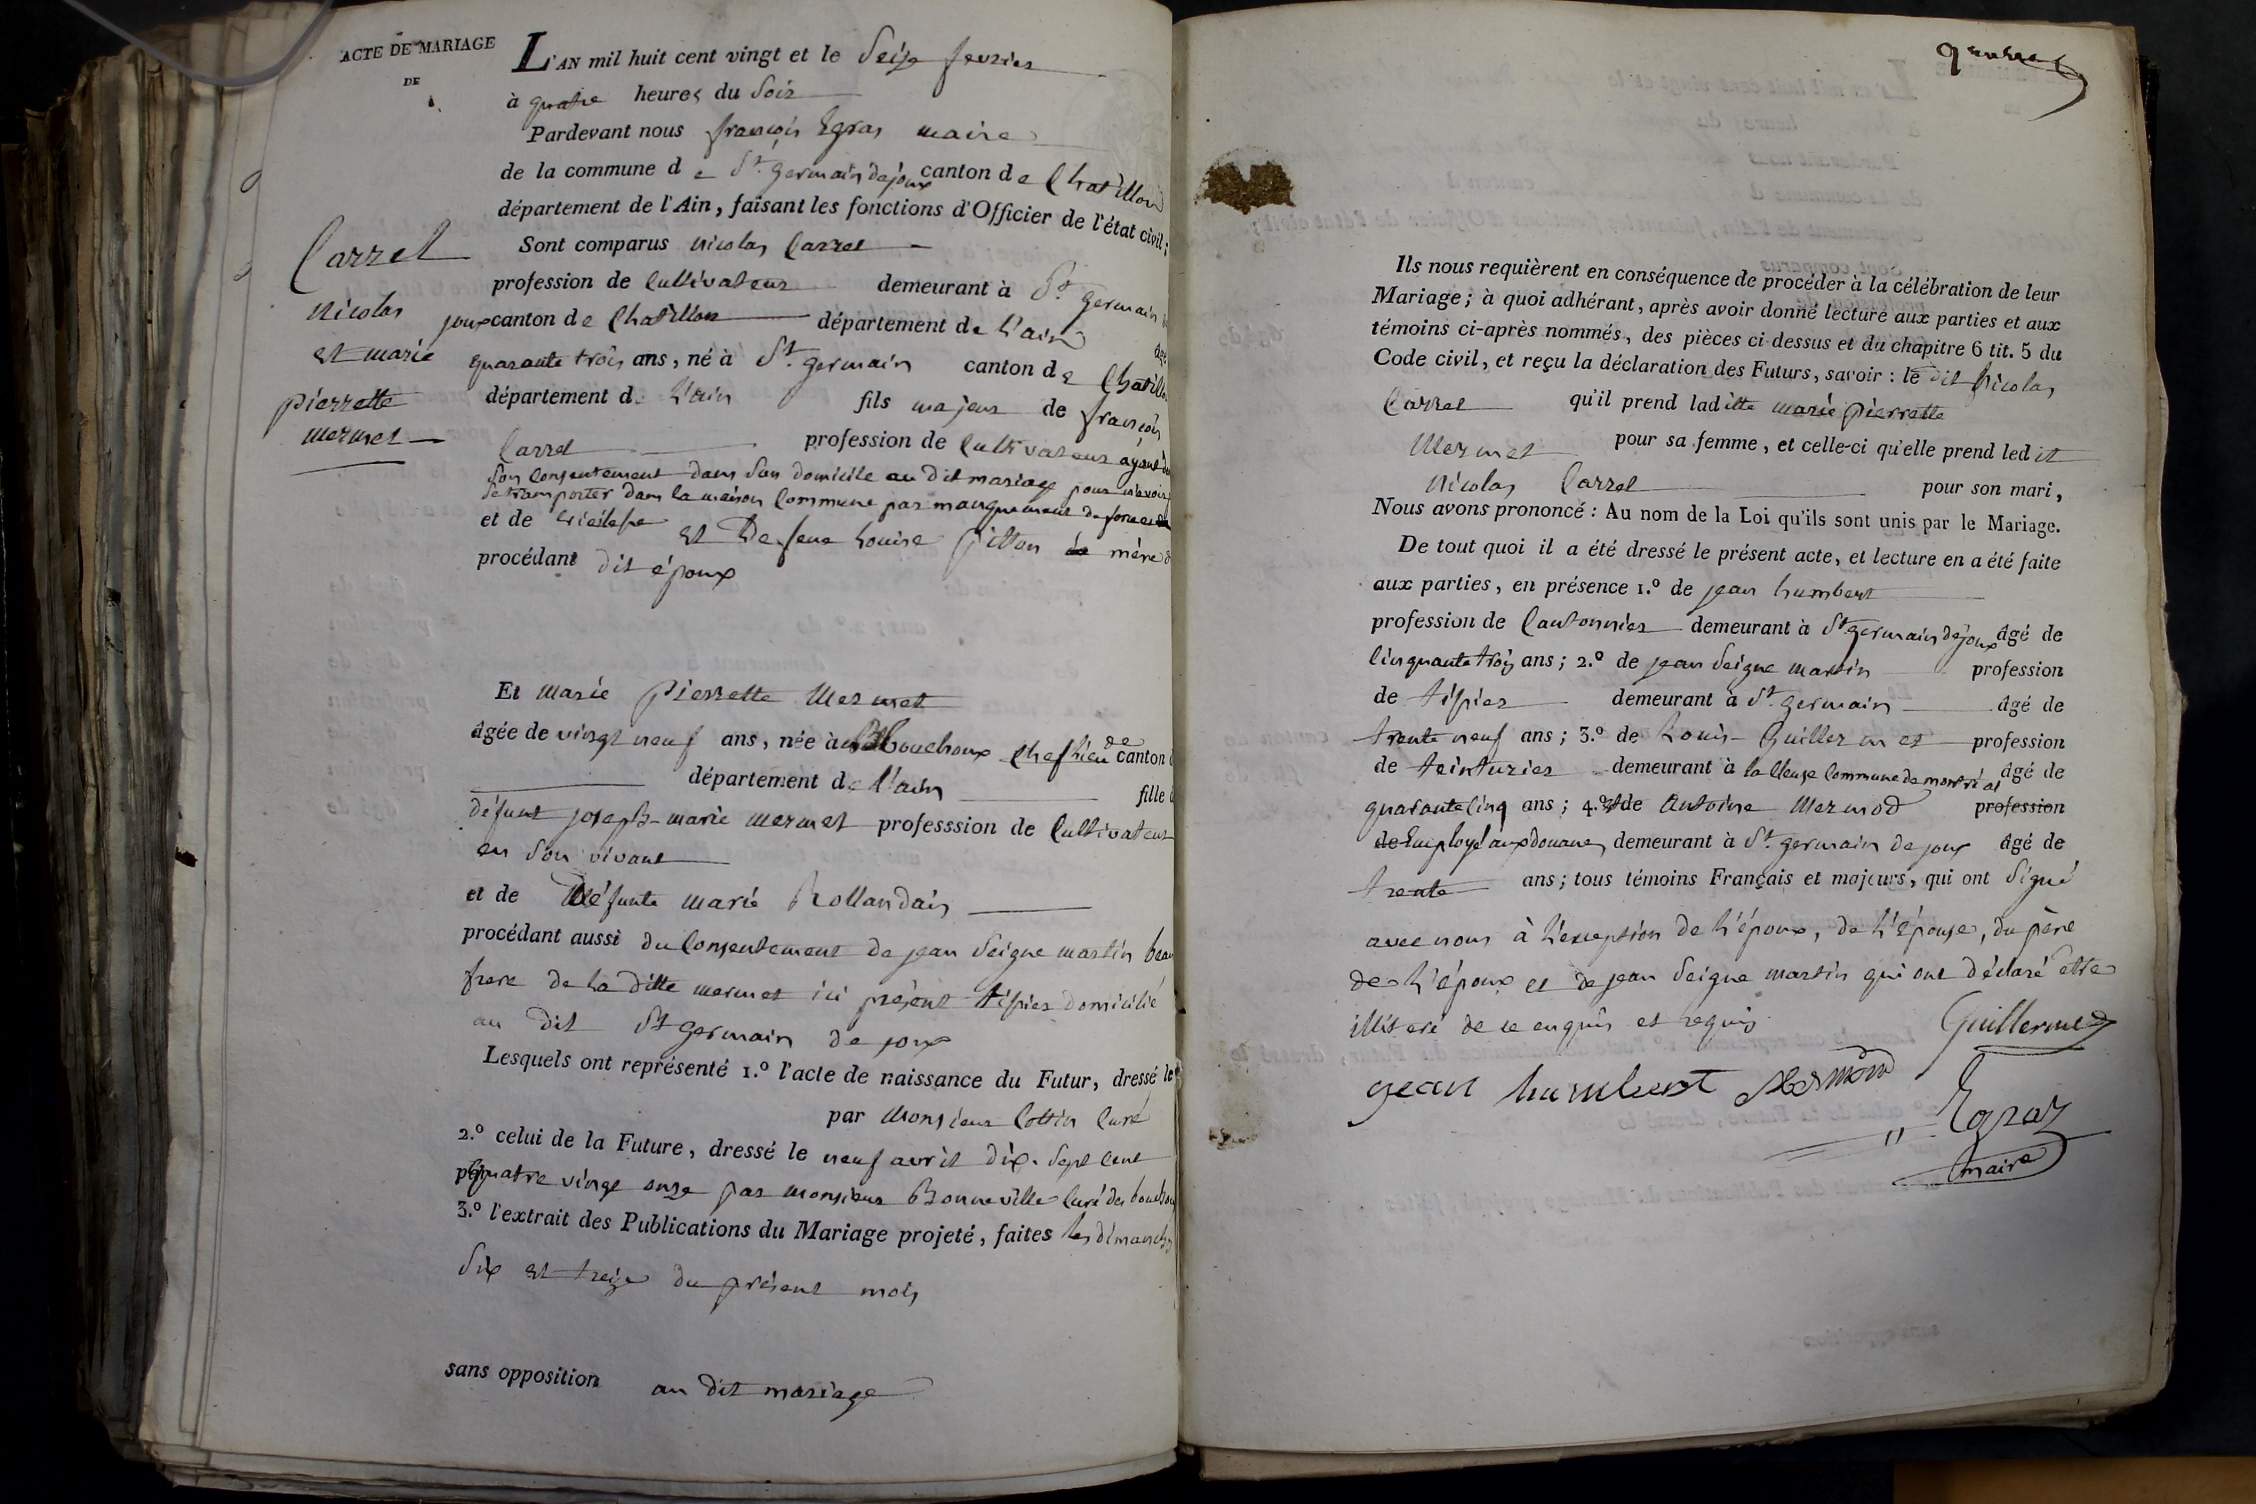 ACTE DE MARIAGE
DE
Carrel
Nicolas
et marie
pierrette
mermet
L'AN mil huit cent vingt et le Seize fevrier
à quatre heures du Soir
Pardevant nous françois Egraz maire
de la commune de St. germain dejoux canton de Chatillon
département de l'Ain, faisant les fonctions d'Officier de l'état civil;
Sont comparus nicolas Carrel
profession de Cultivateur demeurant à St. germain
joux canton de Chatillon département de L'ain
quarante trois ans, né à St. germain canton de Chatillon
département de L'ain fils majeur de françois
Carrel profession de Cultivateur ayant
Son Consentement dans Son domicile au dit mariage pour n'avoir
Se transporter dans la maison Commune par manquement de forces
et de vieilesse et De feue Louise Pitton mère
procédant dit époux
Et marie pierrette Mermet
âgée de vingt neuf ans, née à Bouchoux Cheflieu de canton
département de L'ain fille
défunt joseph-marie mermet professsion de Cultivateur
en Son vivant
et de Défunte marie Rollandais
procédant aussi du Consentement de jean Seigne martin beau
frere de La ditte mermet ici présent tissier domicilié
au dit St germain de joux
Lesquels ont représenté 1.º l'acte de naissance du Futur, dressé le
par Monsieur Cottin Curé
2.º celui de la Future, dressé le neuf avril dix-Sept cent
quatre vingt onze par monsieur Bonneville Curé des bouchoux
3.º l'extrait des Publications du Mariage projeté, faites les dimanches
Six et treize du présent mois
sans opposition au dit mariage
Ils nous requièrent en conséquence de procéder à la célébration de leur
Mariage; à quoi adhérant, après avoir donné lecture aux parties et aux
témoins ci-après nommés, des pièces ci-dessus et du chapitre 6 tit. 5 du
Code civil, et reçu la déclaration des Futurs, savoir : le dit Nicolas
Carrel qu'il prend laditte marie pierrette
Mermet pour sa femme, et celle-ci qu'elle prend ledit
Nicolas Carrel pour son mari,
Nous avons prononcé : Au nom de la Loi qu'ils sont unis par le Mariage.
De tout quoi il a été dressé le présent acte, et lecture en a été faite
aux parties, en présence 1.º de jean humbert
profession de Cantonnier demeurant à St germain dejoux âgé de
Cinquante trois ans; 2.º de jean Seigne martin profession
de tissier demeurant à St. germain âgé de
trente neuf ans; 3.º de Louis Guillermet profession
de teinturier demeurant à La Cluse Commune de montréal âgé de
quarante Cinq ans; 4.º et de Antoine Mermod profession
de Employé aux douanes demeurant à St. germain de joux âgé de
trente ans; tous témoins Français et majeurs, qui ont Signé
avec nous à L'exception de L'époux, de L'Epouse, du père
de L'époux et de jean Seigne martin qui ont déclaré etre
illiteré de ce enquis et requis
Guillermet
jean humbert Mermod
Egraz
maire